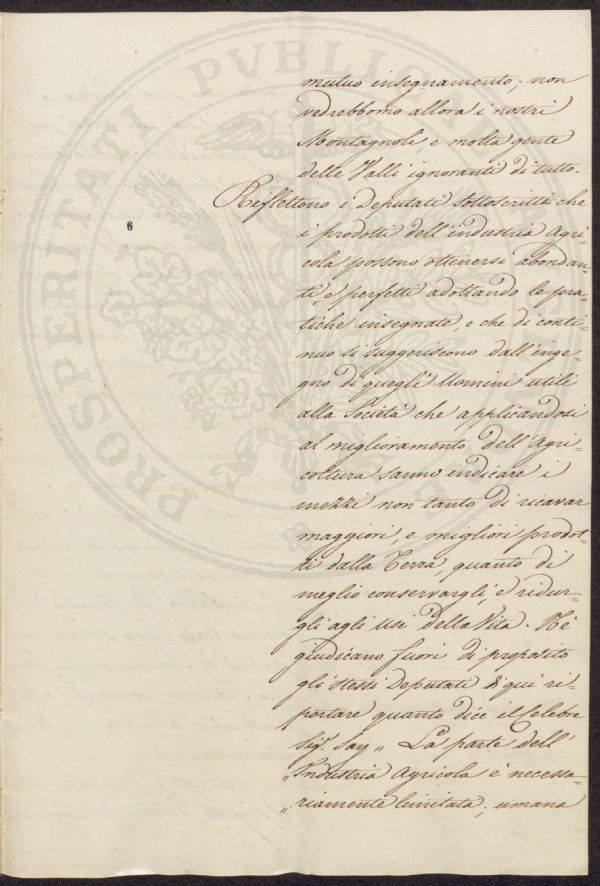 PROSPERITATI PVBLICAE
6
mutuo insegnamento; non
vedrebbomo allora i nostri
Montagnoli, e molta gente
delle Valli ignoranti di tutto.
Riflettono i Deputati Sottoscritti che
i prodotti dell'industria Agri=
cola possono ottenersi abondan=
ti, e perfetti adottando le pra=
tiche insegnate, e che di conti=
nuo si suggeriscono dall'inge=
gno di quegli Uomini utili
alla Società che applicandosi
al miglioramento dell'Agri=
coltura sanno indicare i
mezzi non tanto di ricavar
maggiori, e migliori prodot=
ti dalla Terra, quanto di
meglio conservargli, e ridur=
gli agli usi della Vita. Nè
giudicano fuori di proposito
gli stessi Deputati di quì ri=
portare quanto dice il Celebre
Sig.r Say „ La parte dell'
„ Industria Agricola è necessa=
„ riamente limitata; umana